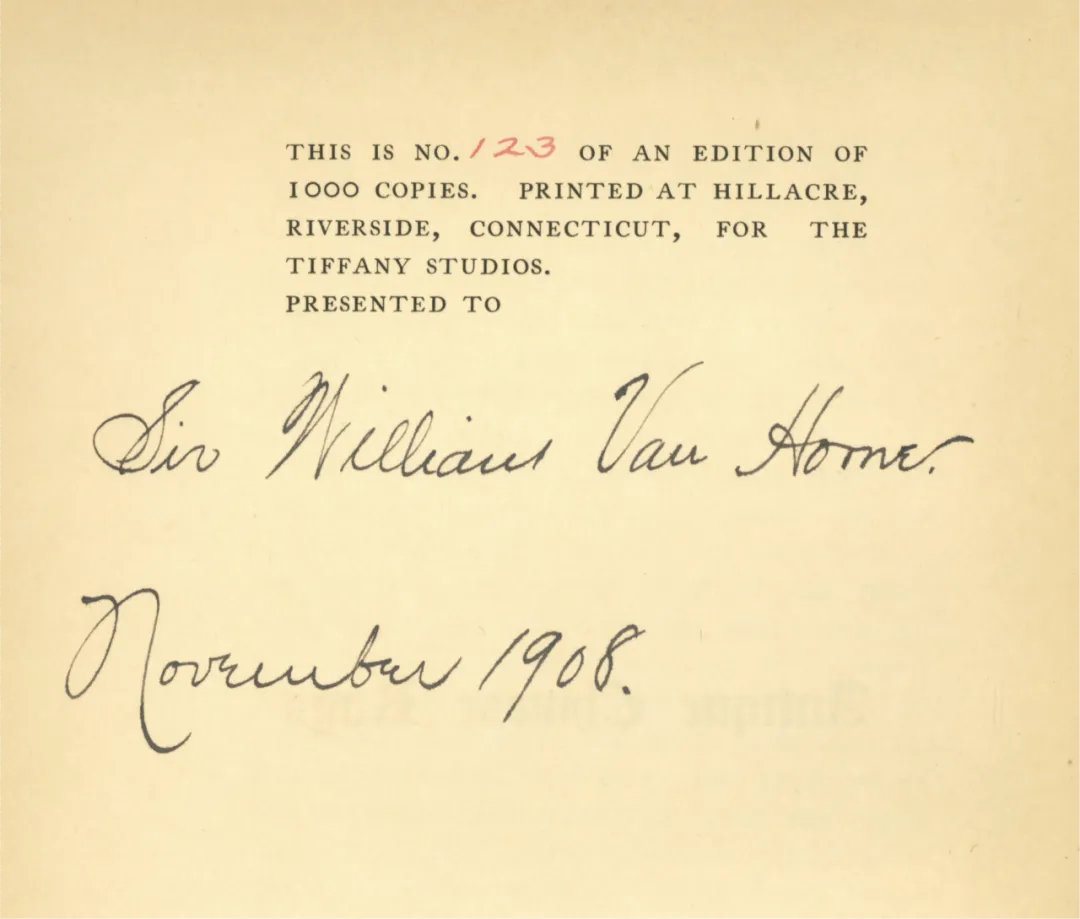 THIS IS NO. 123 OF AN EDITION OF
1000 COPIES. PRINTED AT HILLACRE,
RIVERSIDE, CONNECTICUT, FOR THE
TIFFANY STUDIOS.
PRESENTED TO
Sir William Van Horne.
November 1908.